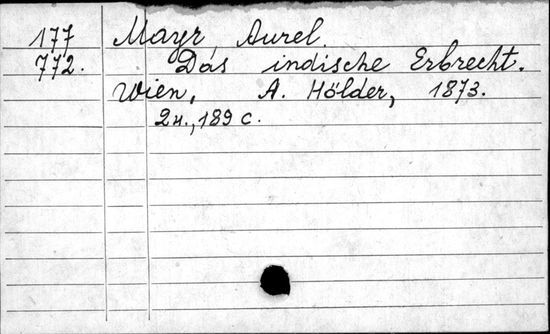 177 Mayr, Aurel.
772. Das indische Erbrecht.
Wien, A. Hölder, 1873.
2 н., 189 с.